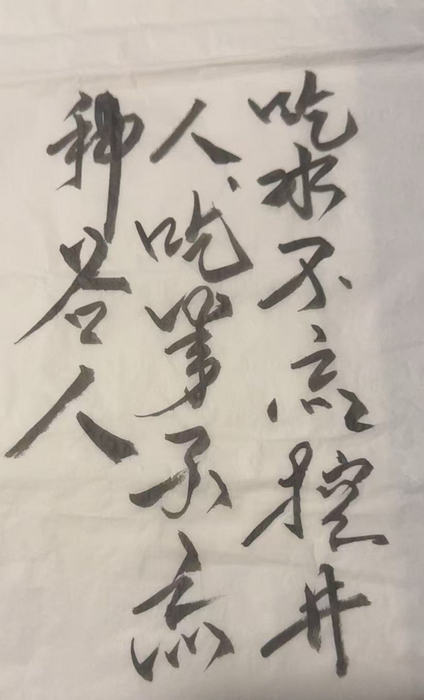 吃水不忘挖井
人、吃忘
种谷人